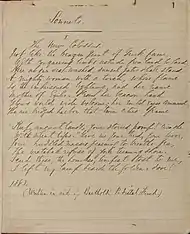 1
Sonnets.
The New Colossus.
Not like the brazen giant of Greek fame,
With conquering limbs astride from land to land;
Here at our sea-washed, sunset gates shall stand
A mighty woman with a torch, whose flame
Is the imprisoned lightning, and her name
Mother of Exiles. From her beacon-hand
Glows world-wide welcome; her mild eyes command
The air-bridged harbor that twin cities frame.
"Keep, ancient lands, your storied pomp!" cries she
With silent lips. "Give me your tired, your poor,
Your huddled masses yearning to breathe free,
The wretched refuse of your teeming shore.
Send these, the homeless, tempest-tost to me,
I lift my lamp beside the golden door!"
1883.
(Written in aid of Bartholdi Pedestal Fund.)